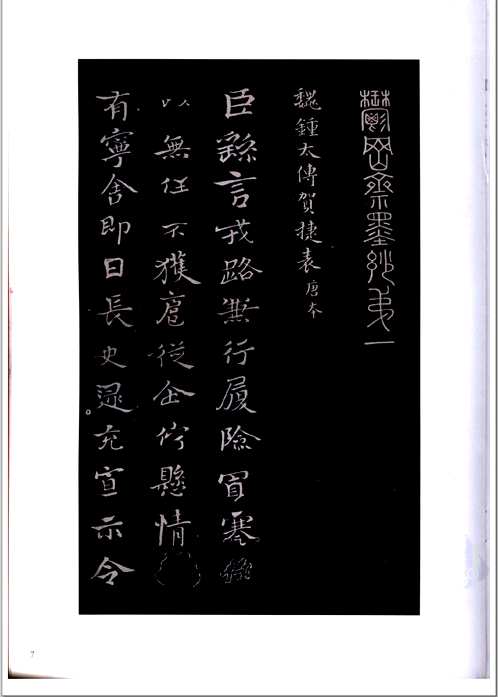 鬱岡齋墨妙弟一
魏鍾太傅賀捷表 唐本
臣繇言戎路兼行履險冒寒
以無任不獲扈從企佇懸情
有寧舍即日長史逯充宣示令
7